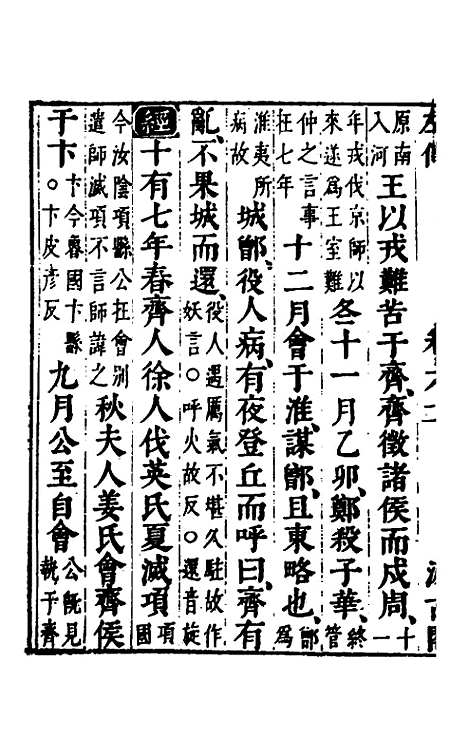 原南入河王以戎難苦于齊、齊徵諸侯而戍周、十一
年戎伐京師以來遂爲王室難冬十一月乙卯、鄭殺子華、終管
仲之言事在七年十二月會于淮、謀鄫、且東略也、鄫爲
淮夷所病故城鄫、役人病、有夜登丘而呼曰、齊有
亂、不果城而還、役人遇厲氣不堪久駐故作妖言○呼火故反○還音旋
經十有七年春齊人徐人伐英氏夏滅項項國
今汝陰項縣公在會別遣師滅項不言師諱之秋夫人姜氏會齊侯
于卞卞今魯國卞縣○卞皮彥反九月公至自會公旣見執于齊